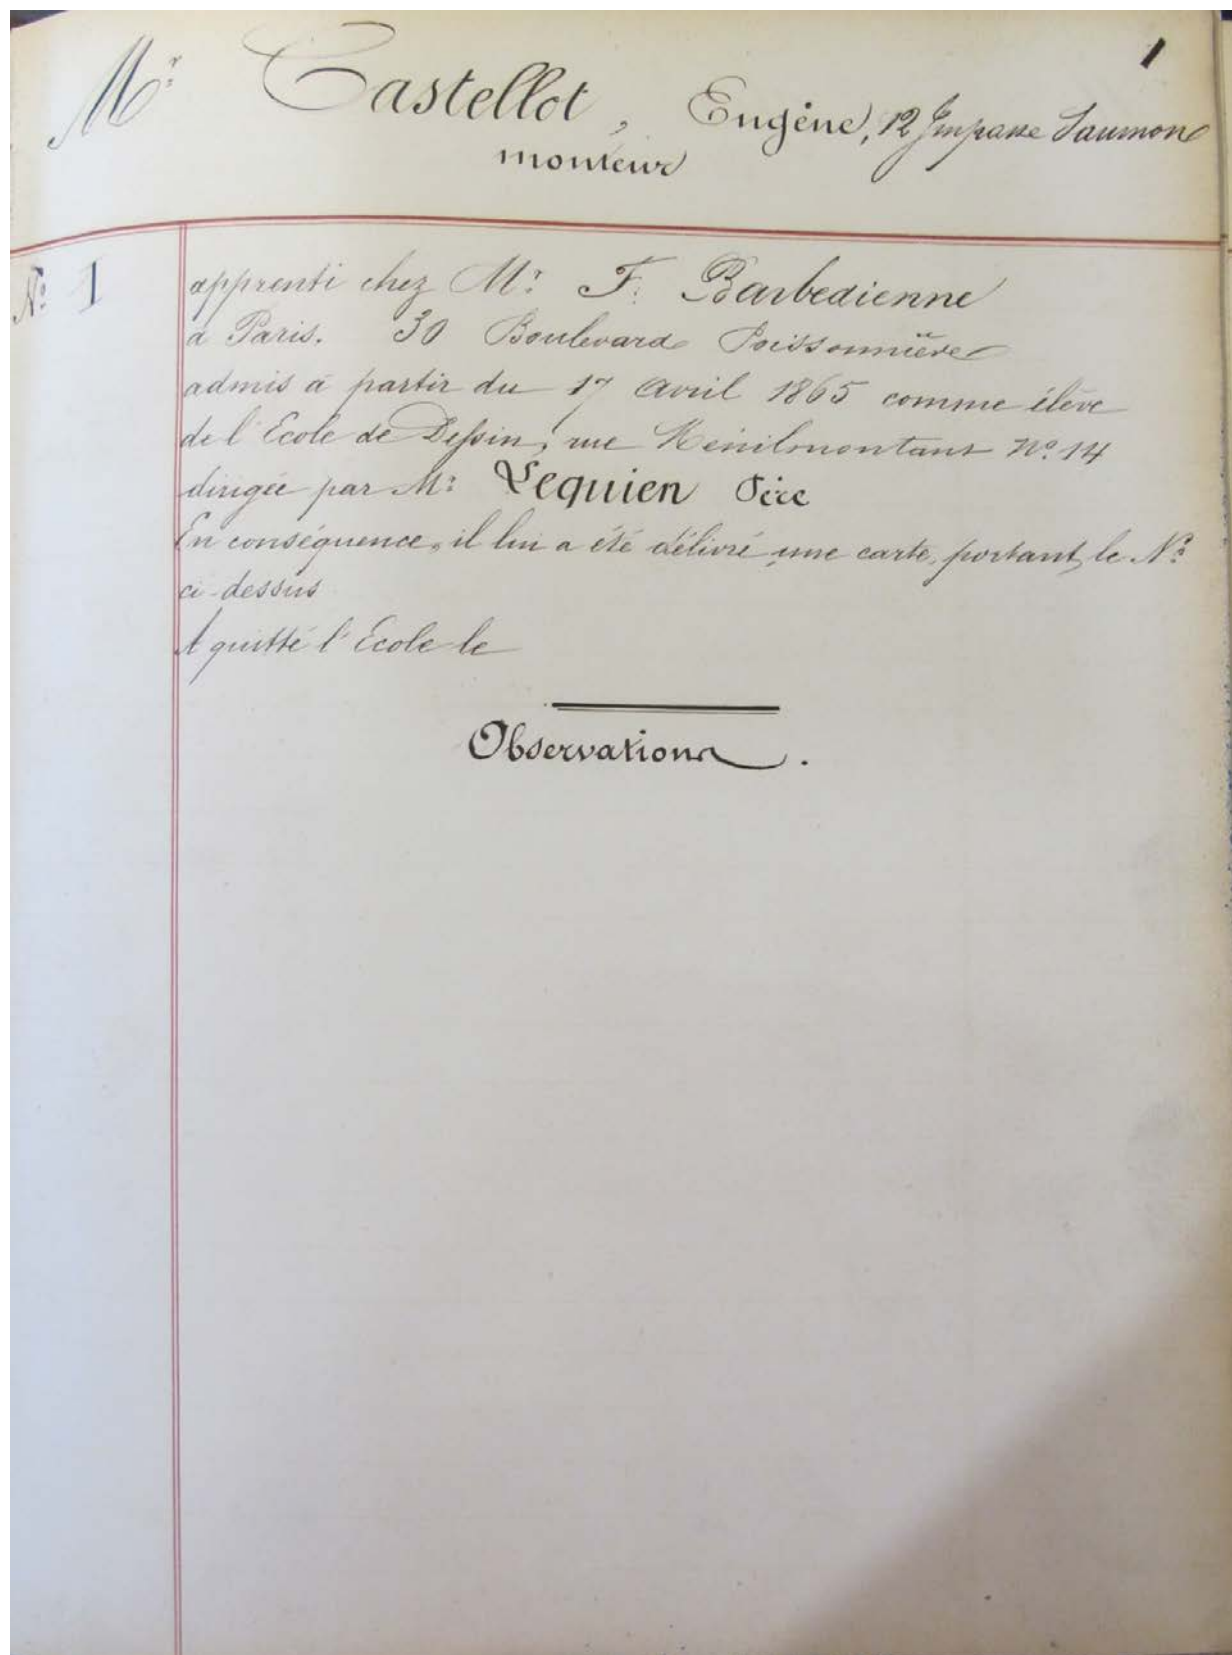 1
Mr Castellot, Eugène, 12 Impasse Saumon
monteur
No. 1
apprenti chez Mr. F. Barbedienne
à Paris. 30 Boulevard Poissonnière
admis à partir du 17 avril 1865 comme élève
de l'Ecole de Dessin, rue Ménilmontant No. 14
dirigée par Mr. Lequien Père
En conséquence, il lui a été délivré une carte, portant le No.
ci-dessus
A quitté l'Ecole le
Observations.